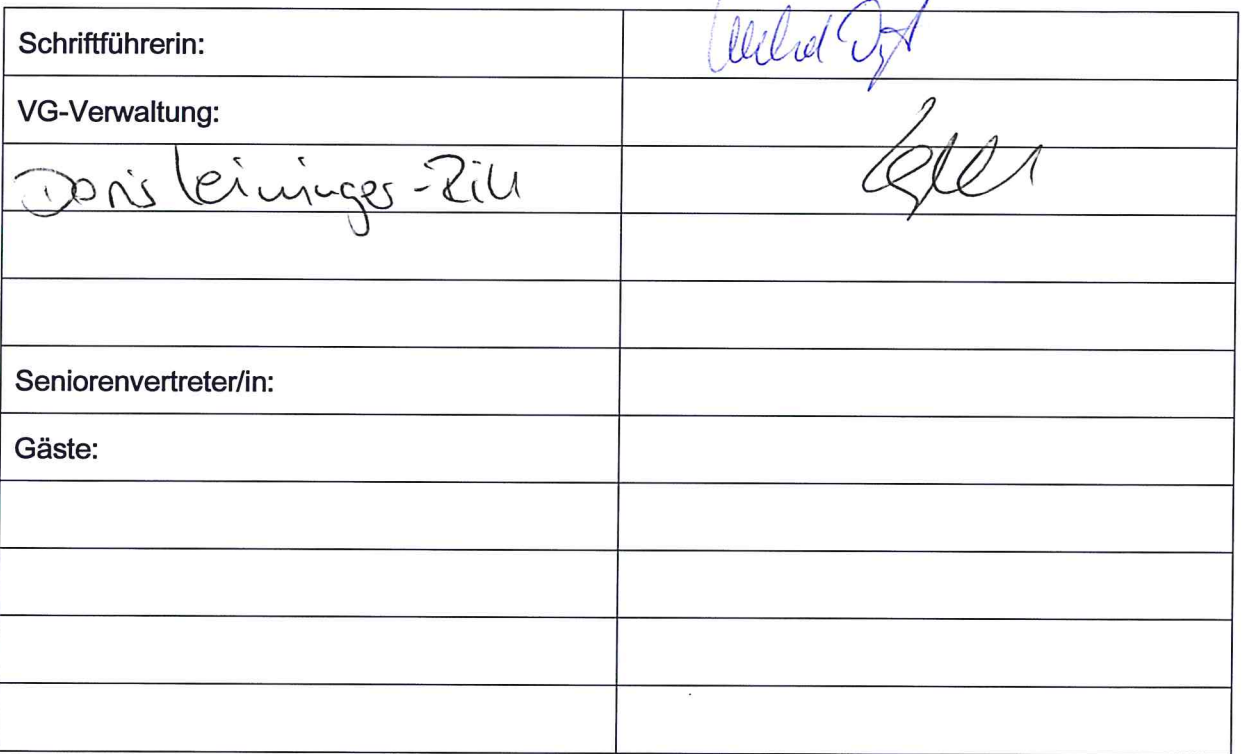 Schriftführerin:
VG-Verwaltung:
Doris Leininger-Rill
Seniorenvertreter/in:
Gäste: